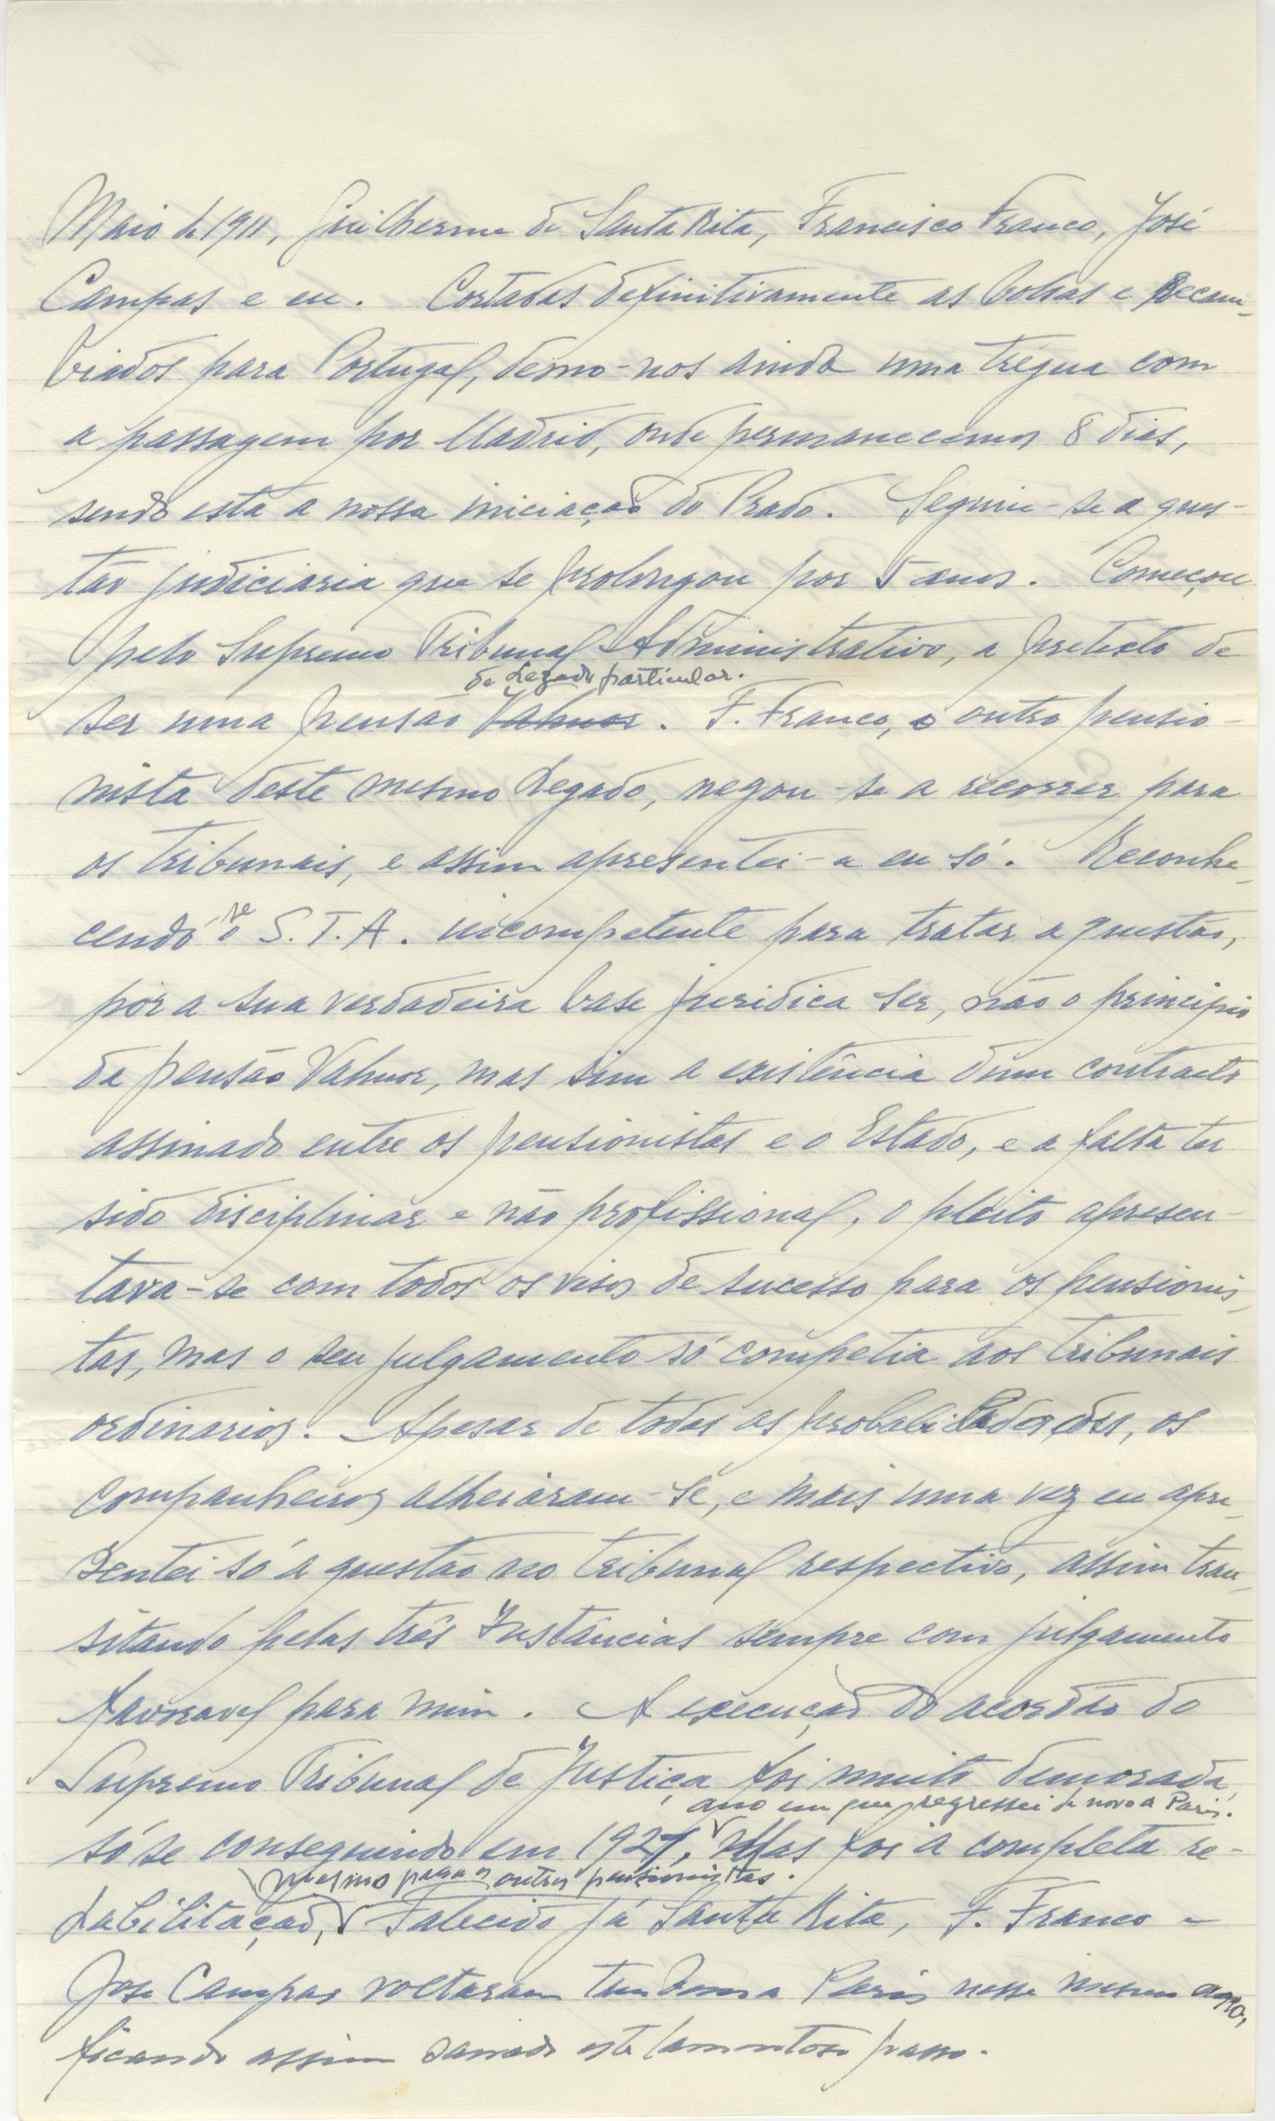 Maio de 1911, Guilherme de Santa Rita, Francisco Franco, José
Campas e eu. Cortadas definitivamente as bolsas e recam-
biados para Portugal, démo-nos ainda uma trégua com
a passagem por Madrid, onde permanecemos 8 dias,
sendo esta a nossa iniciação do Prado. Seguiu-se a ques-
tão judiciaria que se prolongou por 5 anos. Começou
pelo Supremo Tribunal Administrativo, a pretexto de
de Legado particular.
ser uma pensão Valmor. F. Franco, o outro pensio-
nista deste mesmo Legado, negou-se a recorrer para
os tribunais, e assim apresentei-a eu só. Reconhe-
cendo-se o S.T.A. incompetente para tratar a questão,
por a sua verdadeira base juridica ser, não o principio
da pensão Valmor, mas sim a existência dum contracto
assinado entre os pensionistas e o Estado, e a falta ter
sido disciplinar e não profissional, o pleito apresen-
tava-se com todos os visos de sucesso para os pensionis-
tas, mas o seu julgamento só competia aos tribunais
ordinarios. Apesar de todas as probabilidades, os
companheiros alheiaram-se, e mais uma vez eu apre-
sentei só a questão ao tribunal respectivo, assim tran-
sitando pelas três Instâncias sempre com julgamento
favoravel para mim. A execução do acordão do
Supremo Tribunal de Justiça foi muito demorada,
ano em que regressei de novo a Paris.
só se conseguindo em 1921, Mas foi a completa re-
mesmo para os outros pensionistas.
habilitação, Falecido já Santa Rita, F. Franco e
José Campas voltaram tambem a Paris nesse mesmo ano,
ficando assim sanado este lamentoso passo.